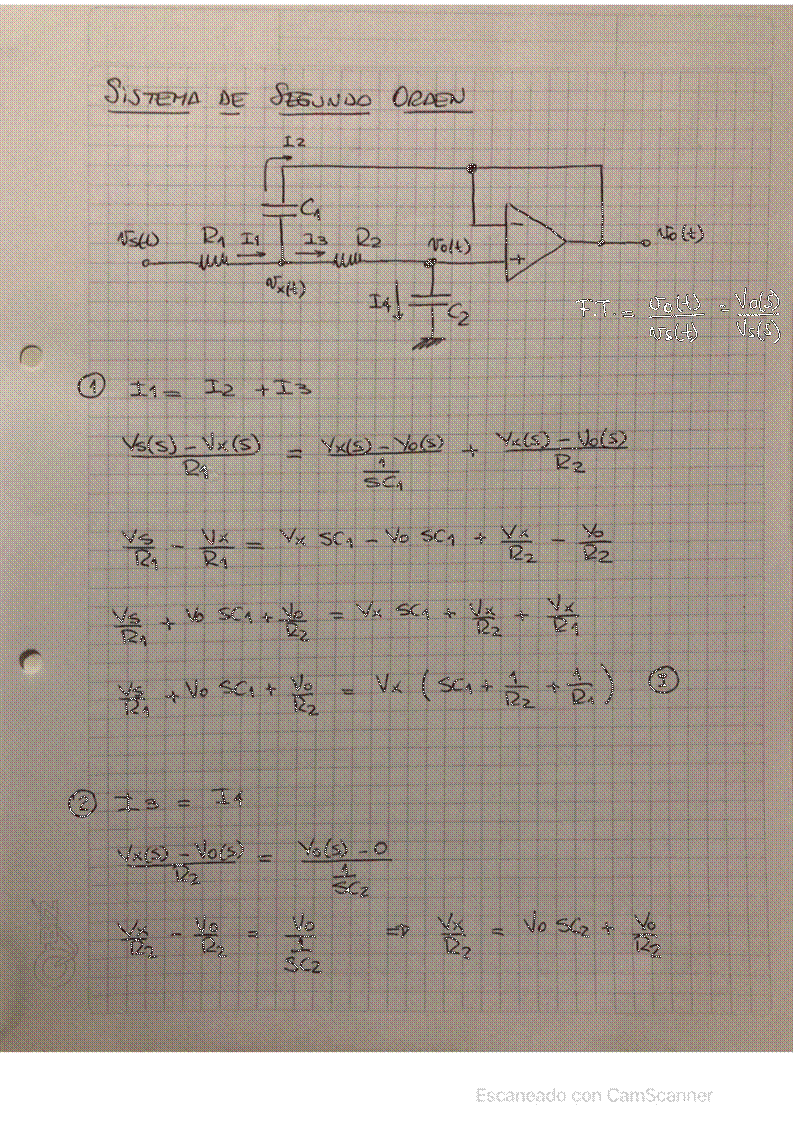 SISTEMA DE SEGUNDO ORDEN
I2
C1
Vs(t) R1 I1 I3 R2 Vo(t) - Vo(t)
Vx(t) +
I4 C2
F.T. = Vo(t)/Vs(t) = Vo(s)/Vs(s)
① I1 = I2 + I3
(Vs(s) - Vx(s))/R1 = (Vx(s) - Vo(s))/(1/SC1) + (Vx(s) - Vo(s))/R2
Vs/R1 - Vx/R1 = Vx SC1 - Vo SC1 + Vx/R2 - Vo/R2
Vs/R1 + Vo SC1 + Vo/R2 = Vx SC1 + Vx/R2 + Vx/R1
Vs/R1 + Vo SC1 + Vo/R2 = Vx (SC1 + 1/R2 + 1/R1)
② I3 = I4
(Vx(s) - Vo(s))/R2 = (Vo(s) - 0)/(1/SC2)
Vx/R2 - Vo/R2 = Vo/(1/SC2) ⇒ Vx/R2 = Vo SC2 + Vo/R2
Escaneado con CamScanner